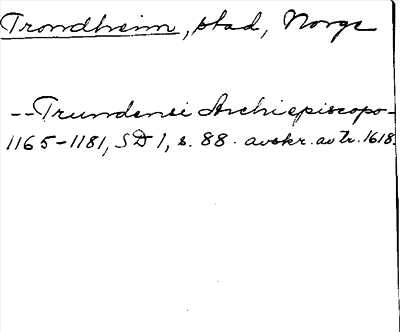 Trondheim, stad, Norge
--Trundensi Archiepiscopo-
1165-1181, SD 1, s. 88. avskr. av tr. 1618.